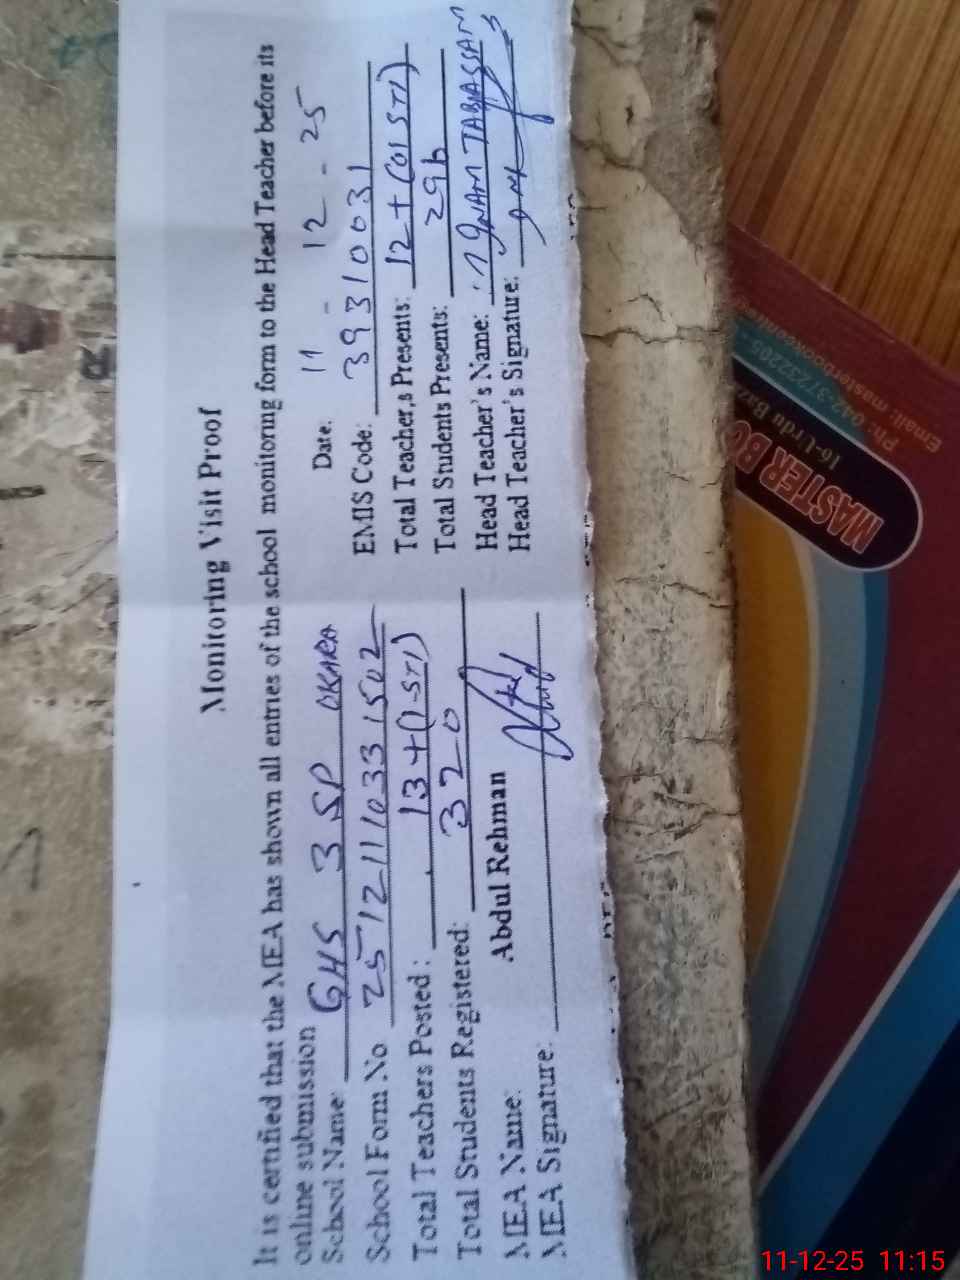 Monitoring Visit Proof
It is certified that the MEA has shown all entries of the school monitoring form to the Head Teacher before its
online submission
Date: 11 - 12 - 25
School Name: GHS 3 SP OKARA
EMIS Code: 39310031
School Form No 25121110331502
Total Teacher,s Presents: 12 + (01 STI)
Total Teachers Posted : 13 + (1-STI)
Total Students Presents: 296
Total Students Registered: 320
Head Teacher's Name: INAM TABASSAM
MEA Name: Abdul Rehman
Head Teacher's Signature:
MEA Signature:
MASTER BO
16-Urdu Baz
Ph: 042-37232205
Email: masterbooks
11-12-25 11:15